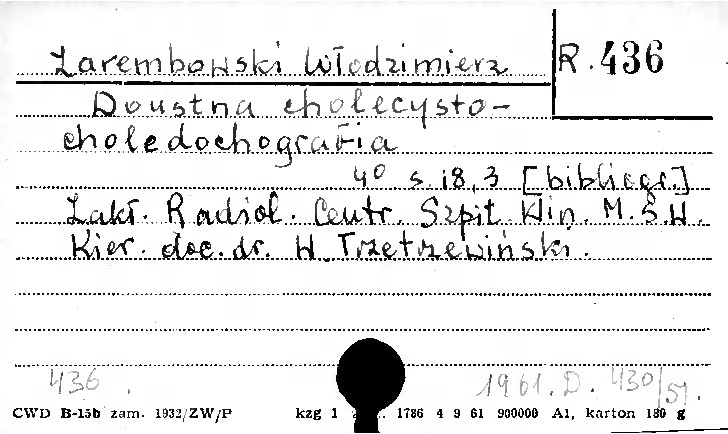 Zarembowski Włodzimierz R. 436
Doustna cholecysto-
choledochografia
4° s. 18,3 [bibliogr.]
Zakł. Radiol. Centr. Szpit. Klin. M.S.W.
Kier. doc. dr. W. Trzetrzewiński.
436. 1961. D. 430/51.
CWD B-15b zam. 1932/ZW/P kzg 1 1786 4 9 61 900000 A1, karton 180 g